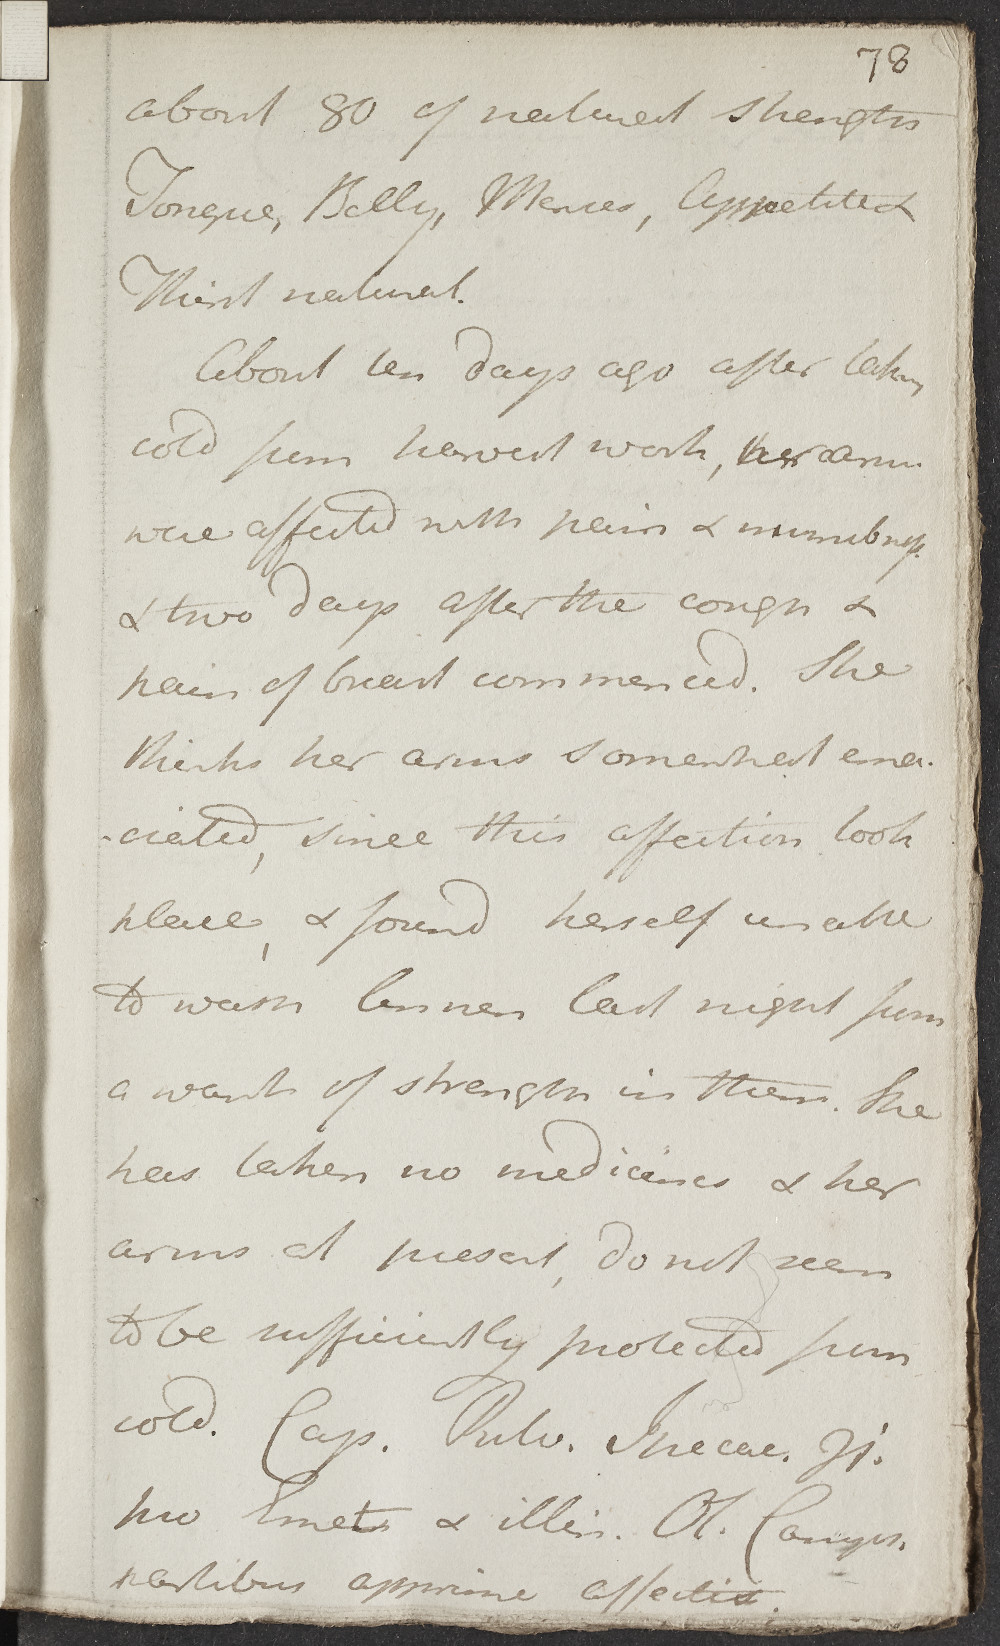 78
about 80 of natural strength
Tongue, Belly, Menses, Appetite &
Thirst natural.
About ten days ago after taking
cold from harvest work, her arms
were affected with pain & numbness.
& two days after the cough &
pain of breast commenced. She
thinks her arms somewhat ema-
-ciated, since this affection took
place, & found herself unable
to wash linnen last night from
a want of strength in them. She
has taken no medicines & her
arms at present, do not seem
to be sufficiently protected from
cold. Cap. Pulv. Ipecac. ʒi.
pro Emet. & illin. Ol. Camph.
partibus apprime affectis.